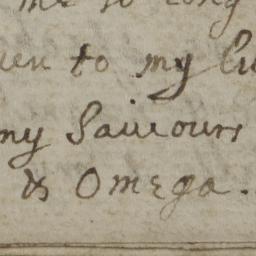 me so long
to my
my Saviours
& Omega.